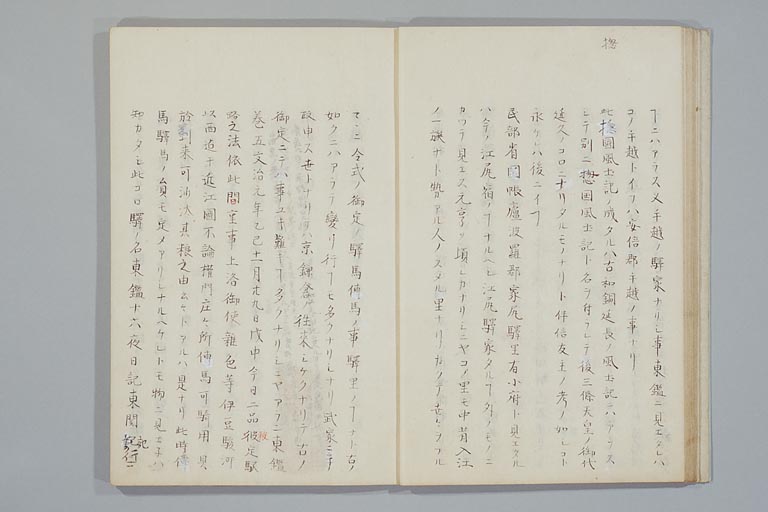 惣
丁ニハアラス又手越ノ驛家ナリシ事東鑑ニ見エタレハ
コノ手越トイフハ安倍郡手越ノ事ナリ
此惣国風土記ノ成タルハ古和銅延長ノ風土記ニハアラス
シテ別ニ惣国風土記ト名ヲ付テレテ後三條天皇ノ御代
延久ノコロニナリタルモノナリト伴信友主ノ考ノ如シコト
永ケレハ後ニイフ
民部省圖帳廬波羅郡家尻驛里有小府ト見エタル
ハ今ノ江尻宿ノ丁ナルヘシ江尻驛家タル丁外ノモノニ
カツテ見エス元享ノ頃
ノ一族ナト勢アル人ノスメル里ナリ
マニ令式ノ御定ノ驛馬傳馬ノ事驛里ノ丁ナト古ノ
如クニハアラテ變リ行テ七名クナリシナリ武家ニテ
政申ス世トナリテハ京鎌倉ノ往来シケクナリテ古ノ
御定ニテハ事ユキ難キ丁多クナリシニヤアラン東鑑
巻五文治元年乙巳十一月廿九日戊申今日二品被定駅
路之法依此間重事上洛御使雑色等伊豆駿河
以西迄于近江國不論權門庄々所傳馬可騎用且
於到来可沙汰其粮之由云々トアルハ是ナリ此時傳
馬驛馬ノ員モ定メアリシナルヘケレト物ニ見エネハ
知カタシ此コロ驛ノ名東鑑十六夜日記東関記行ニ